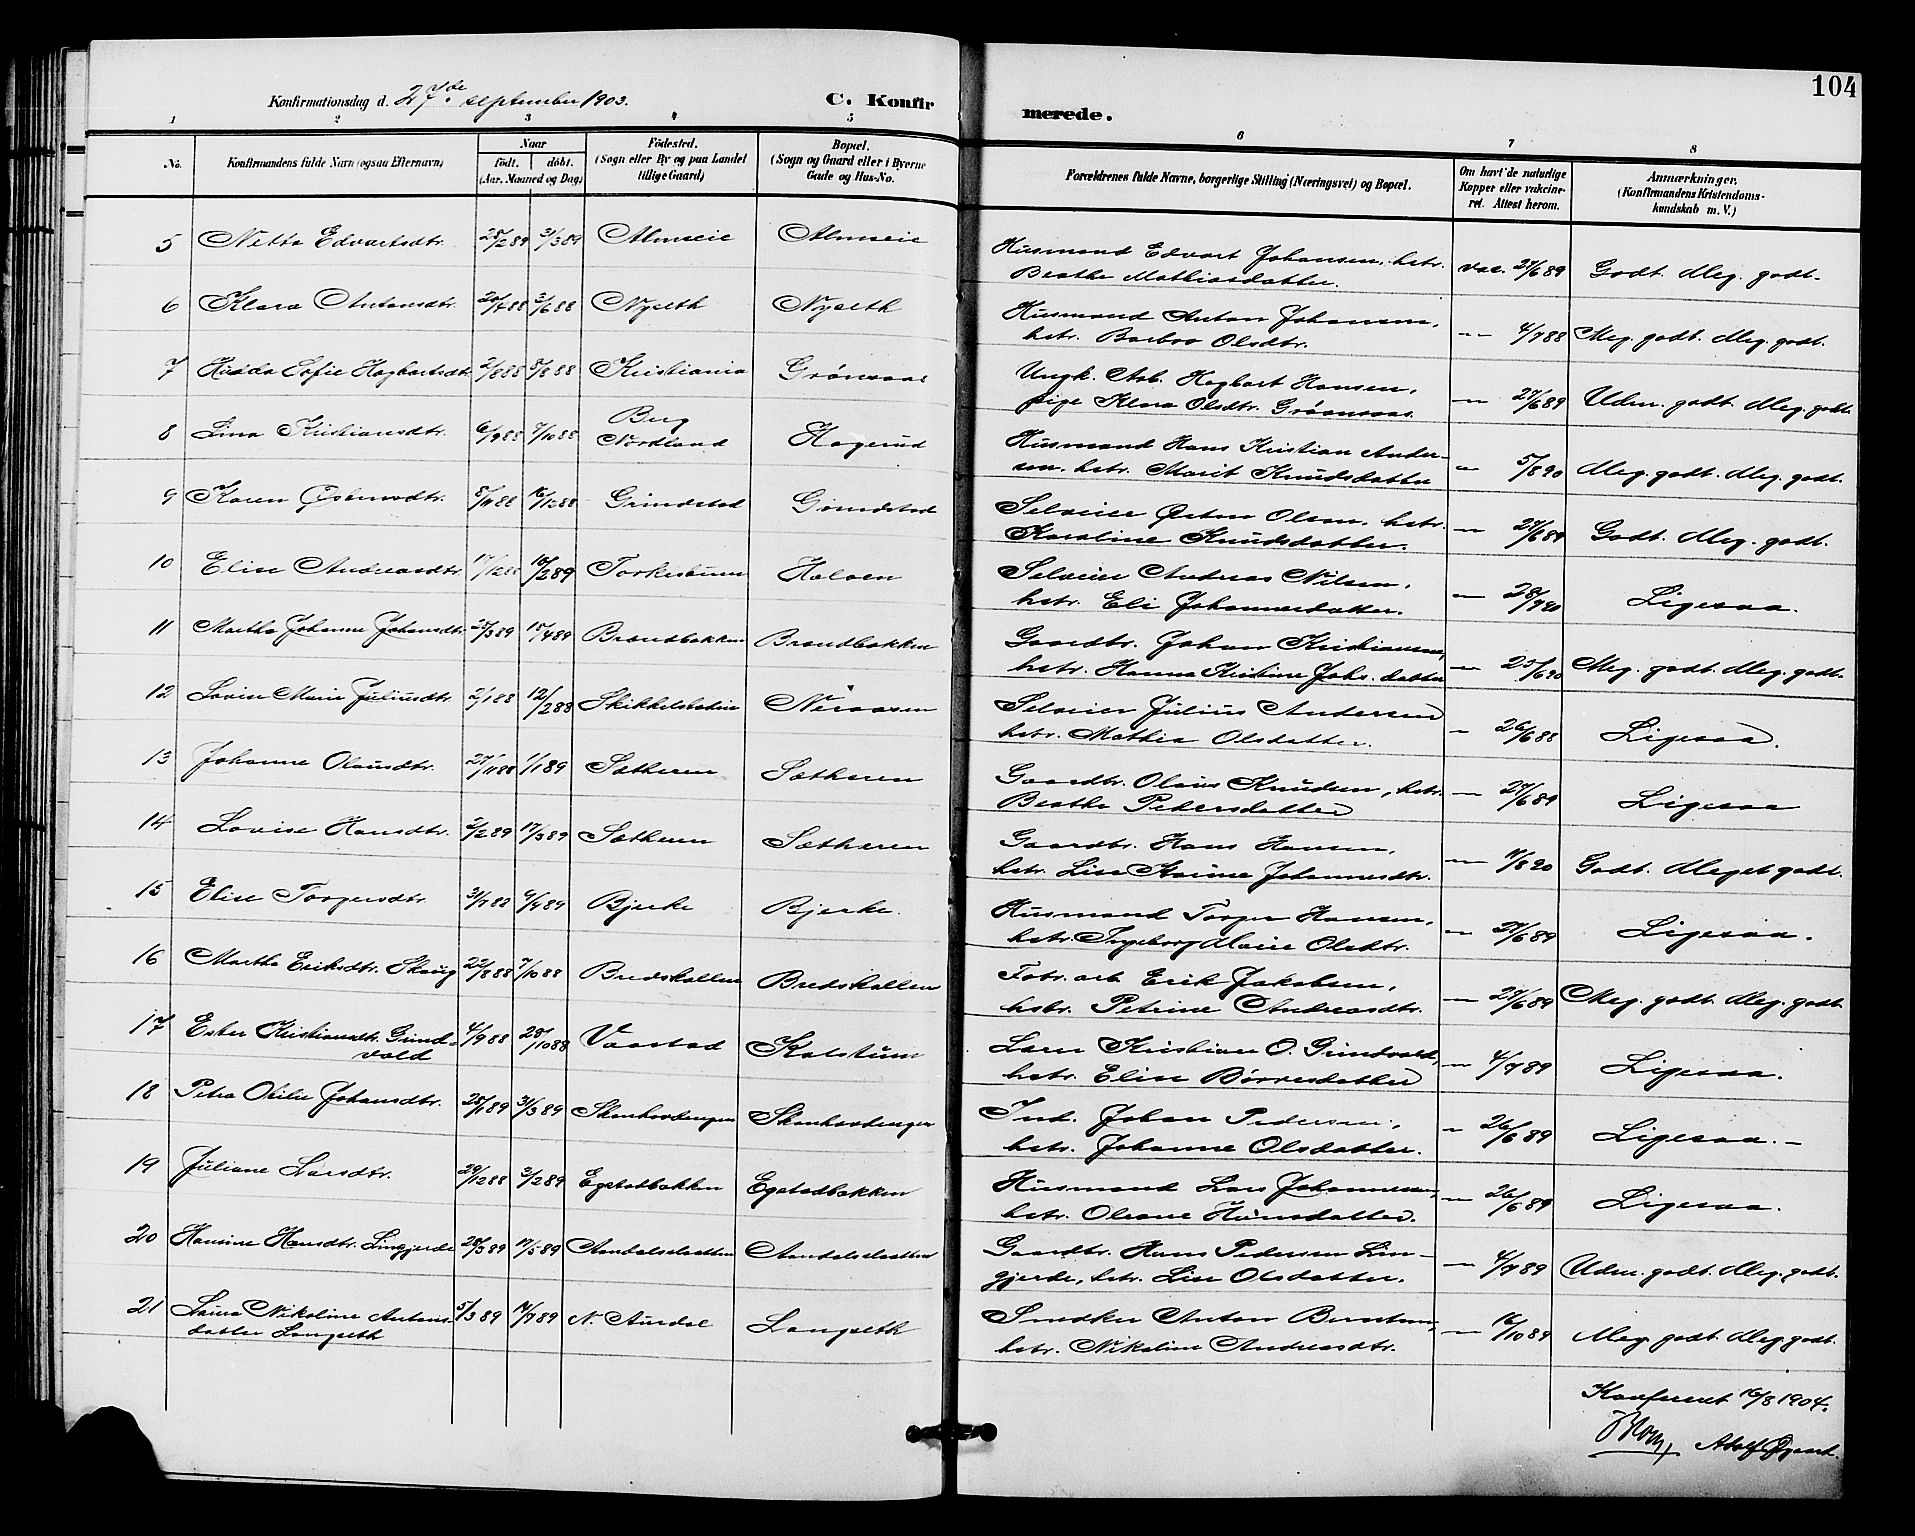 104
Konfirmationsdag d. 27de september 1903.
C. Konfir
merede.
1 2 3 4 5 6 7 8
No.
Konfirmandens fulde Navn (ogsaa Efternavn)
Naar
født. døbt.
(Aar, Maaned og Dag)
Fødested.
(Sogn eller By og paa Landet
tillige Gaard)
Bopæl.
(Sogn og Gaard eller i Byerne
Gade og Hus-No.
Forældrenes fulde Navne, borgerlige Stilling (Næringsvei) og Bopæl.
Om havt de naturlige
Kopper eller vakcine-
ret. Attest herom.
Anmærkninger.
(Konfirmandens Kristendoms-
kundskab m. V.)
5 Netta Edvartsdtr. 28/2 89 31/3 89 Almseie Almseie Husmand Edvart Johansen, hstr. vac. 27/6 89 Godt. Meg. godt.
Beathe Mathiasdatter.
6 Klara Antonsdtr. 3/6 88 Nyseth Nyseth Husmand Anton Johansen, 4/7 88 Meg. godt. Meg. godt.
hstr. Barbro Olsdtr.
7 Sofie Hagbartsdtr. 5/8 88 Kristiania Grønsaas Ungk. Arb. Hagbart Hansen, 27/6 89 Uden. godt. Meg. godt.
pige Klara Olsdtr. Grønsaas.
8 Lina Kristiansdtr. 6/9 88 7/10 88 Berg
Nordland Hagerud Husmand Hans Kristian Ander- 5/8 90 Meg. godt. Meg. godt.
sen. hstr. Marit Knudsdatter
9 Karen 5/11 88 16/12 88 Grindstad Grindstad Selveier Olsen, hstr. 27/6 89 Godt. Meg. godt.
Karoline Knudsdatter.
10 Elise Andreasdtr. 17/12 88 10/2 89 Halven Selveier Andreas Nilsen, 28/9 90 Ligesaa.
hstr. Eli Johannesdatter.
11 Martha Johanne Johansdtr. 25/3 89 15/4 89 Brandbakken Brandbakken Gaardbr. Johan Kristiansen, 25/6 90 Meg. godt. Meg. godt.
hstr. Hanna Kristine Johs. datter
12 Lovise Marie Juliusdtr. 2/1 88 12/2 88 Selveier Julius Andersen 26/6 88 Ligesaa.
hstr. Mathia Olsdatter.
13 Johanne Olausdtr. 27/11 88 1/1 89 Sætheren Sætheren Gaardbr. Olaus Knudsen, hstr. 27/6 89 Ligesaa
Beathe Pedersdatter
14 Lovise Hansdtr. 2/2 89 17/3 89 Sætheren Sætheren Gaardbr. Hans Hansen, 7/8 90 Godt. Meget godt.
hstr. Lise Karine Johannesdtr.
15 Elise Torgersdtr. Bjerke Bjerke. Husmand Torger Hansen, 27/6 89 Ligesaa.
hstr. Ingeborg Marie Olsdtr.
16 Martha Eriksdtr. Skaug 22/8 88 7/10 88 Bredskallen Bredskallen Fabr. arb Erik Jakobsen, 27/6 89 Meg. godt. Meg. godt.
hstr. Petrine Andreasdtr.
17 Ester Kristiansdtr. Grind-
vold 4/9 88 28/10 88 Vaastad Kalstuen Kristian O. Grindvold, 4/7 89 Ligesaa.
hstr. Elise Børresdatter
18 Petra Otilie Johansdtr. 28/1 89 31/3 89 Skanhovdengen Skanhovdengen Ind. Johan Pedersen, 26/6 89 Ligesaa. -
hstr. Johanne Olsdatter.
19 Juliane Larsdtr. 29/12 88 3/2 89 Egstadbakken Egstadbakken Husmand Lars Johannesen, 26/6 89 Ligesaa.
hstr. Oleane Hansdatter.
20 Hansine Hansdtr. Lingjerde 28/3 89 17/5 89 Aandalsslaatten Aandalsslaatten Gaardbr. Hans Pedersen Lin-
4/7 89 Uden. godt. Meg. godt.
gjerde, hstr. Lise Olsdatter.
21 Laura Nikoline Antons-
datter Langseth 5/3 89 14/7 89 N. Aurdal Langseth Snedker Anton Berntsen, 16/10 89 Meg. godt. Meg godt.
hstr. Nikoline Andreasdtr.
Konfereret 16/8 1904.
Adolf Øgaard.